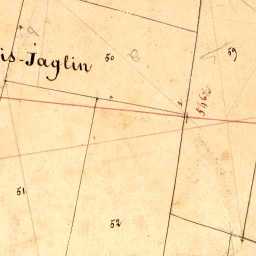 50
59
is-Jaglin
51
52